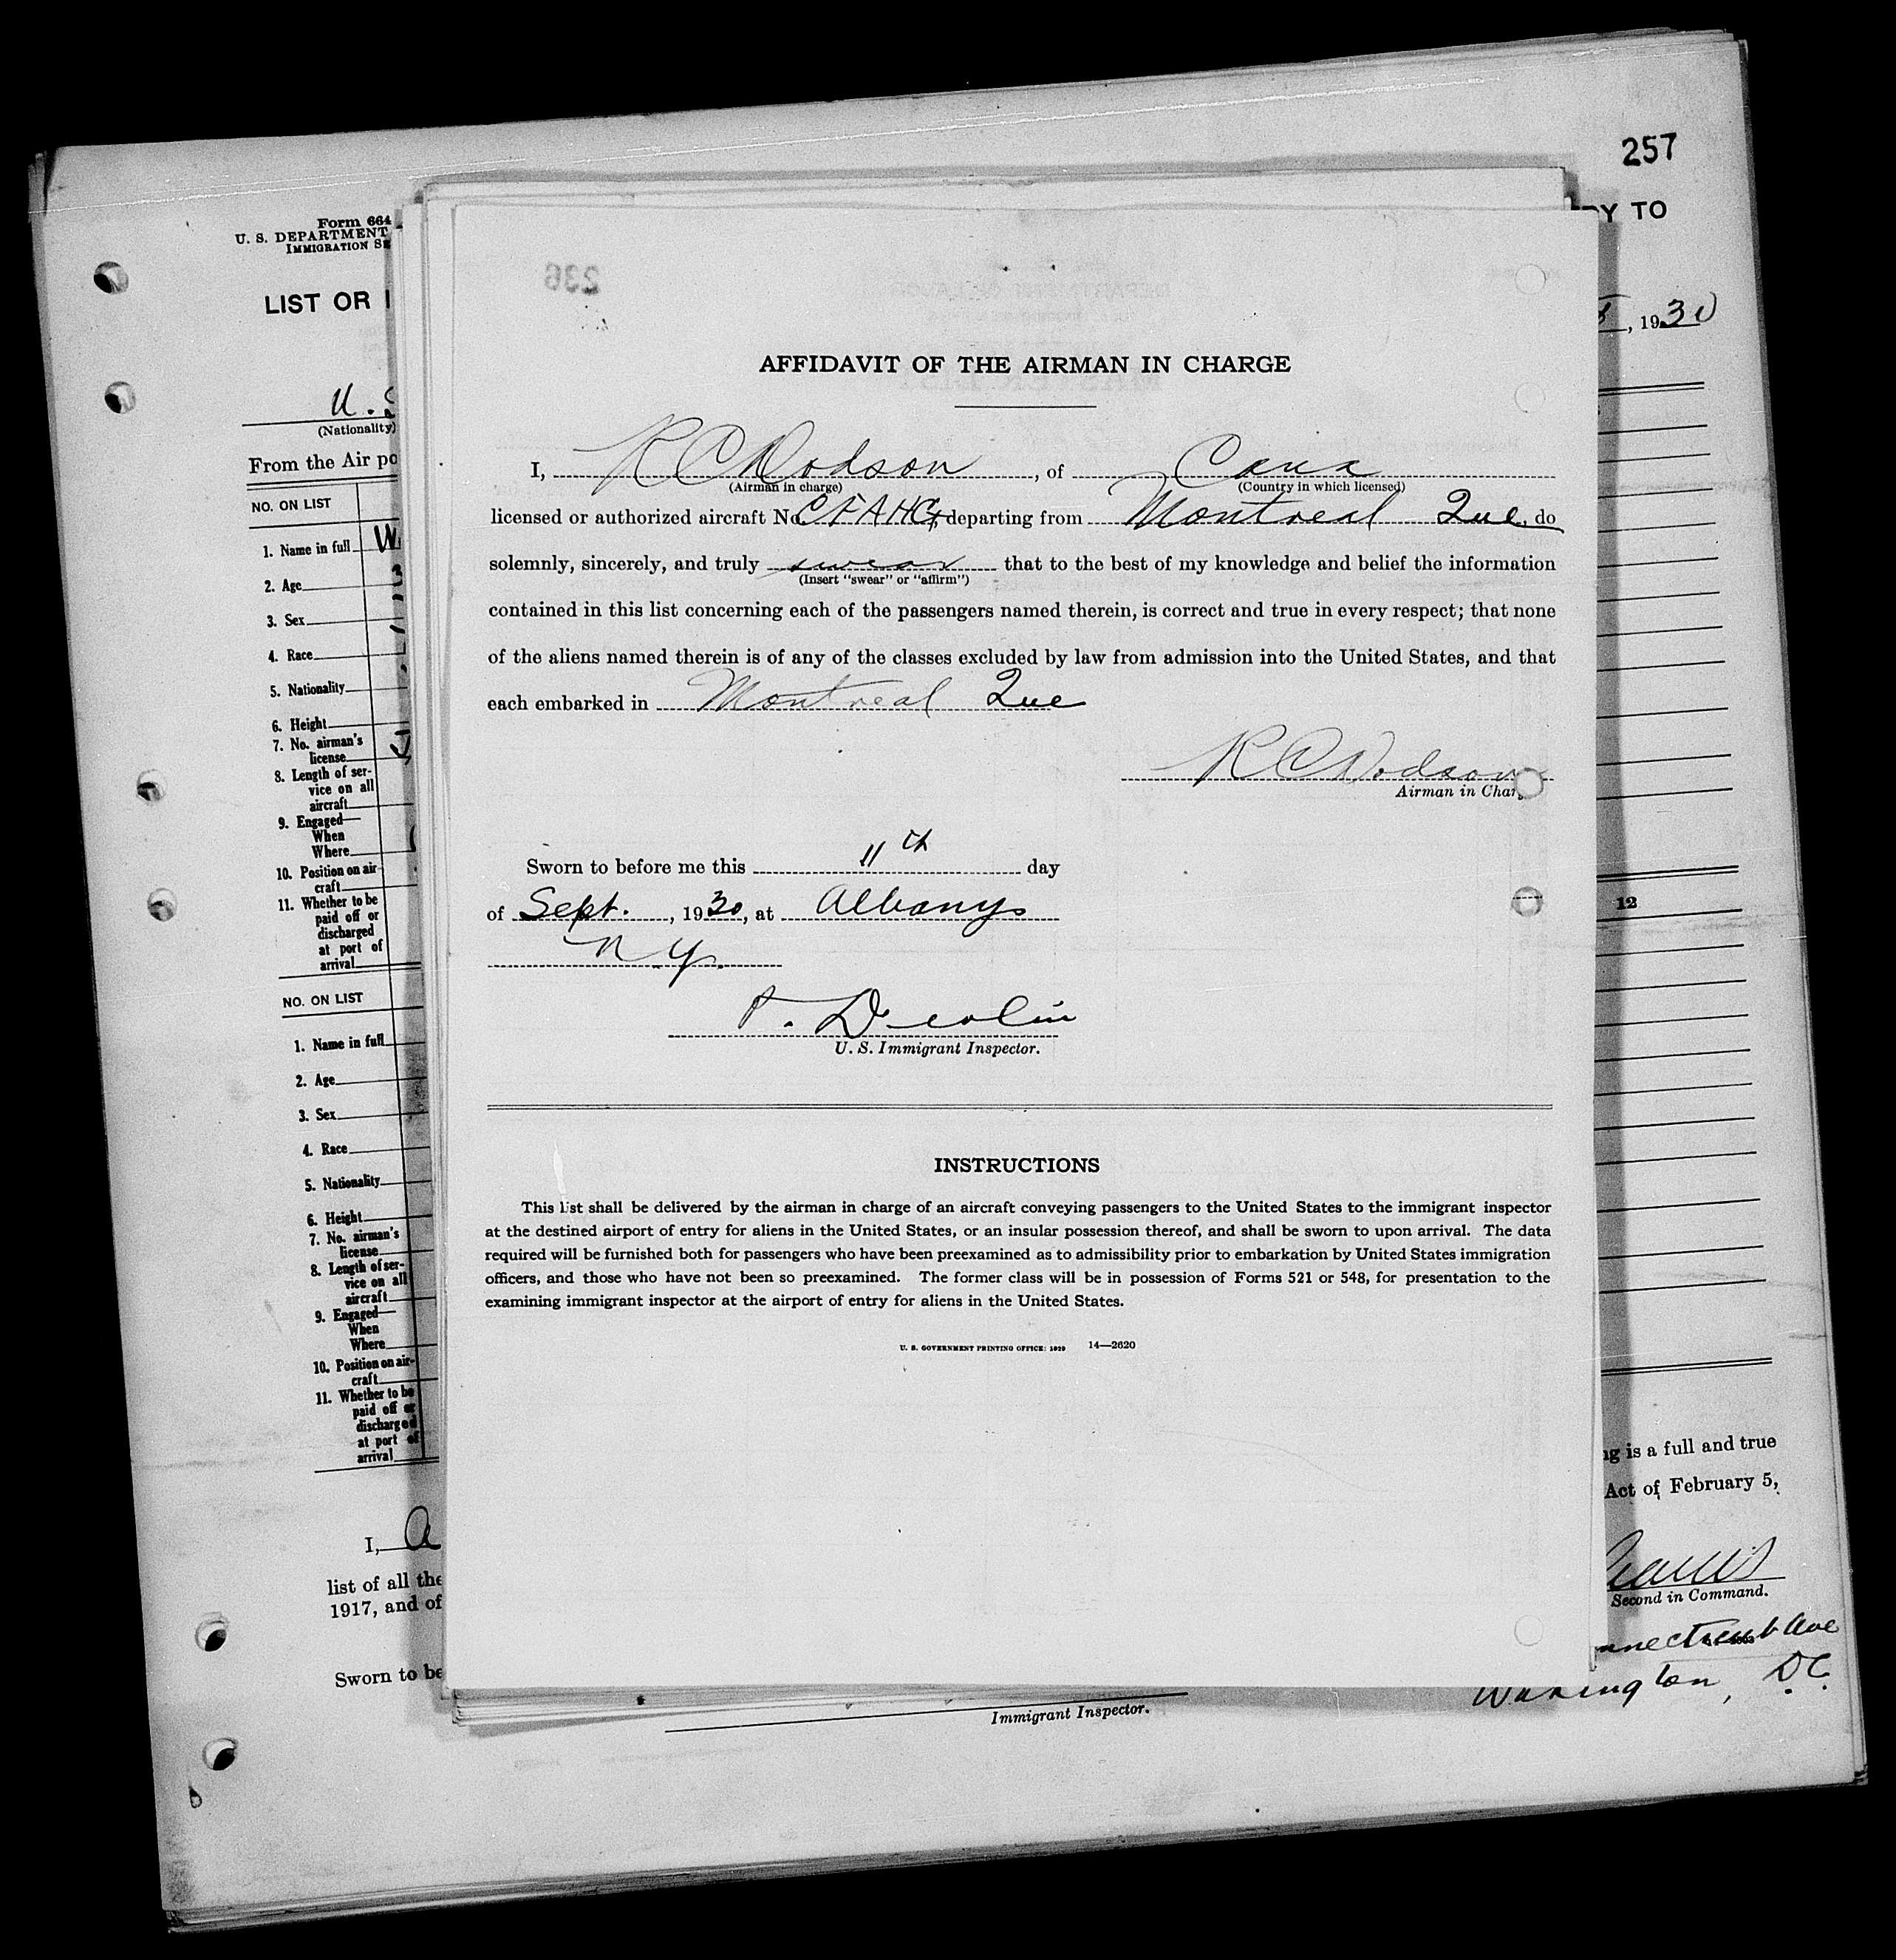 257
Form 664
U. S. DEPARTMENT
IMMIGRATION
RY TO
LIST OR
, 1930
U. S
(Nationality)
From the Air po
NO. ON LIST
1. Name in full W
2. Age 3
3. Sex
4. Race
5. Nationality
6. Height
7. No. airman's
license
8. Length of ser-
vice on all
aircraft
9. Engaged—
When
Where
10. Position on air-
craft
11. Whether to be
paid off or
discharged
at port of
arrival
NO. ON LIST
1. Name in full
2. Age
3. Sex
4. Race
5. Nationality
6. Height
7. No. airman's
license
8. Length of ser-
vice on all
aircraft
9. Engaged—
When
Where
10. Position on air-
craft
11. Whether to be
paid off or
discharged
at port of
arrival
I, a
list of all the
1917, and of
Sworn to be
236
AFFIDAVIT OF THE AIRMAN IN CHARGE
I, R C Dodson, of Cana
(Airman in charge) (Country in which licensed)
licensed or authorized aircraft No. CFAHG, departing from Montreal Que, do
solemnly, sincerely, and truly swear that to the best of my knowledge and belief the information
(Insert "swear" or "affirm")
contained in this list concerning each of the passengers named therein, is correct and true in every respect; that none
of the aliens named therein is of any of the classes excluded by law from admission into the United States, and that
each embarked in Montreal Que
R C Dodson
Airman in Charg
Sworn to before me this 11th day
of Sept., 1930, at Albany
N.Y.
U. S. Immigrant Inspector.
INSTRUCTIONS
This list shall be delivered by the airman in charge of an aircraft conveying passengers to the United States to the immigrant inspector
at the destined airport of entry for aliens in the United States, or an insular possession thereof, and shall be sworn to upon arrival. The data
required will be furnished both for passengers who have been preexamined as to admissibility prior to embarkation by United States immigration
officers, and those who have not been so preexamined. The former class will be in possession of Forms 521 or 548, for presentation to the
examining immigrant inspector at the airport of entry for aliens in the United States.
U. S. GOVERNMENT PRINTING OFFICE: 1929 14—2620
12
ng is a full and true
Act of February 5,
Second in Command.
nnecticut Ave
Washington, D.C.
Immigrant Inspector.